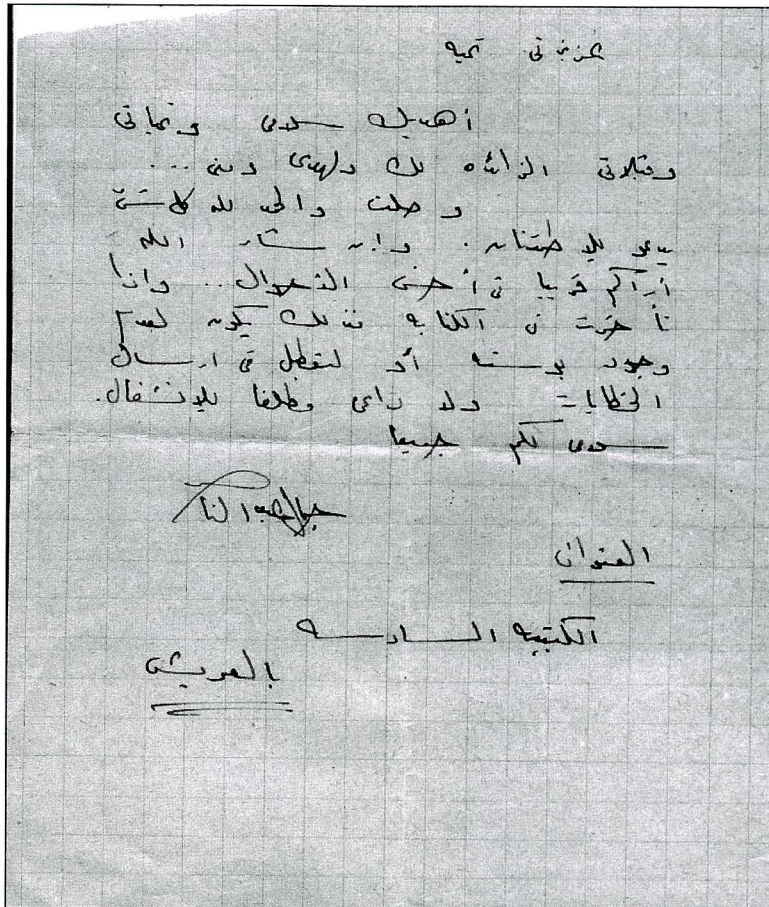 عزيزتى تحيه
أهديك سلامى وتحياتى
وقبلاتى الزائده لك ولهدى ومنى ...
وصلت والحمد لله كل شئ
يدعو للاطمئنان . وإن شاء الله
أراكم قريبا فى أحسن الأحوال .. واذا
تأخرت فى الكتابه فذلك يكون لعدم
وجود بوسته أو لتعطل فى ارسال
الخطابات ولا داعى مطلقا للانشغال .
سلامى لكم جميعا
جمال عبد الناصر
العنوان
الكتيبه السادسه
بالعريش